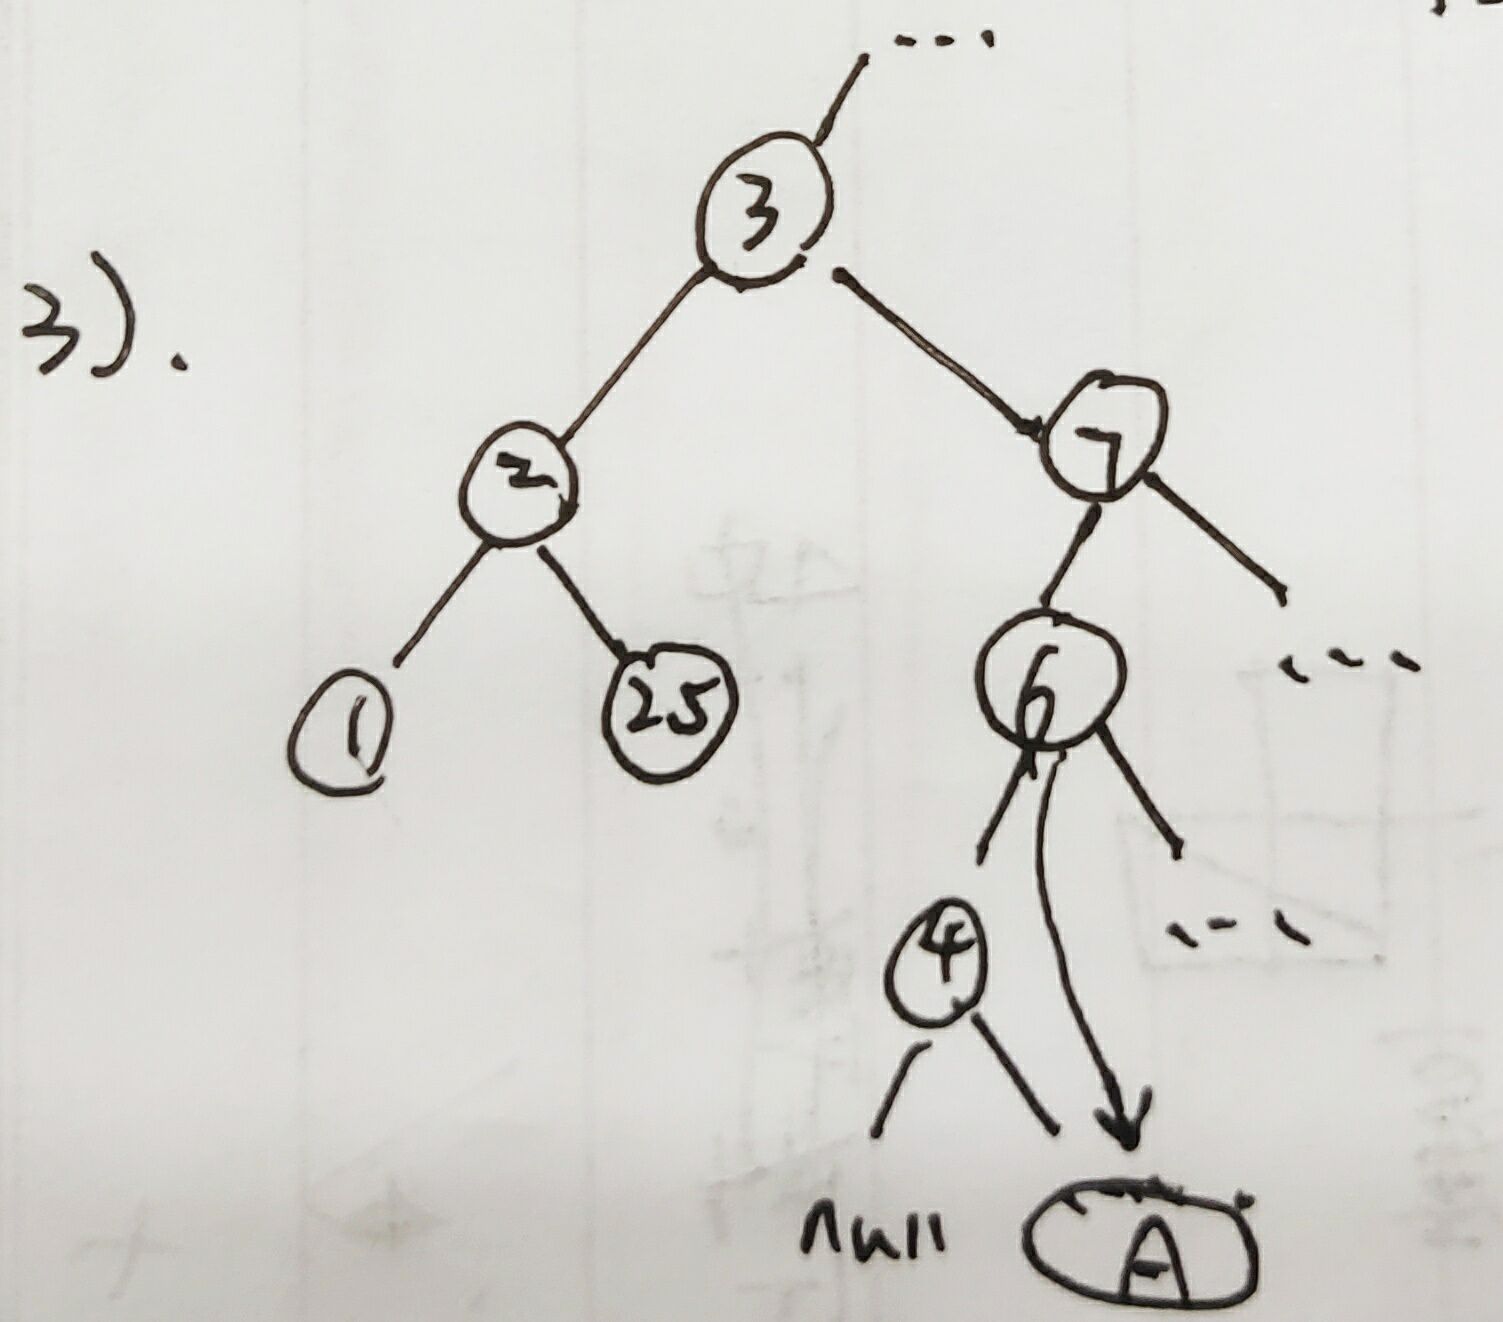 ...
3
3).
2
7
1
25
6
...
4
...
null
A